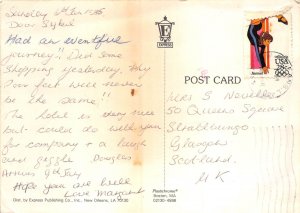 Sunday
Dear Sybil
Had an eventful
journey". Did some
Shopping yesterday. My
Poor feet will never
be the same".
The hotel is very nice
but could do with you
for company + a laugh
and giggle Douglas
Hope you are well
Love Margaret
Dist. by Express Publishing Co., Inc., New Orleans, LA 70130
E
EXPRESS
POST CARD
Plastichrome®
Boston, MA
02130-4898
USA
Mrs S
50 Queens Square
Strathbungo
Glasgow
Scotland.
UK